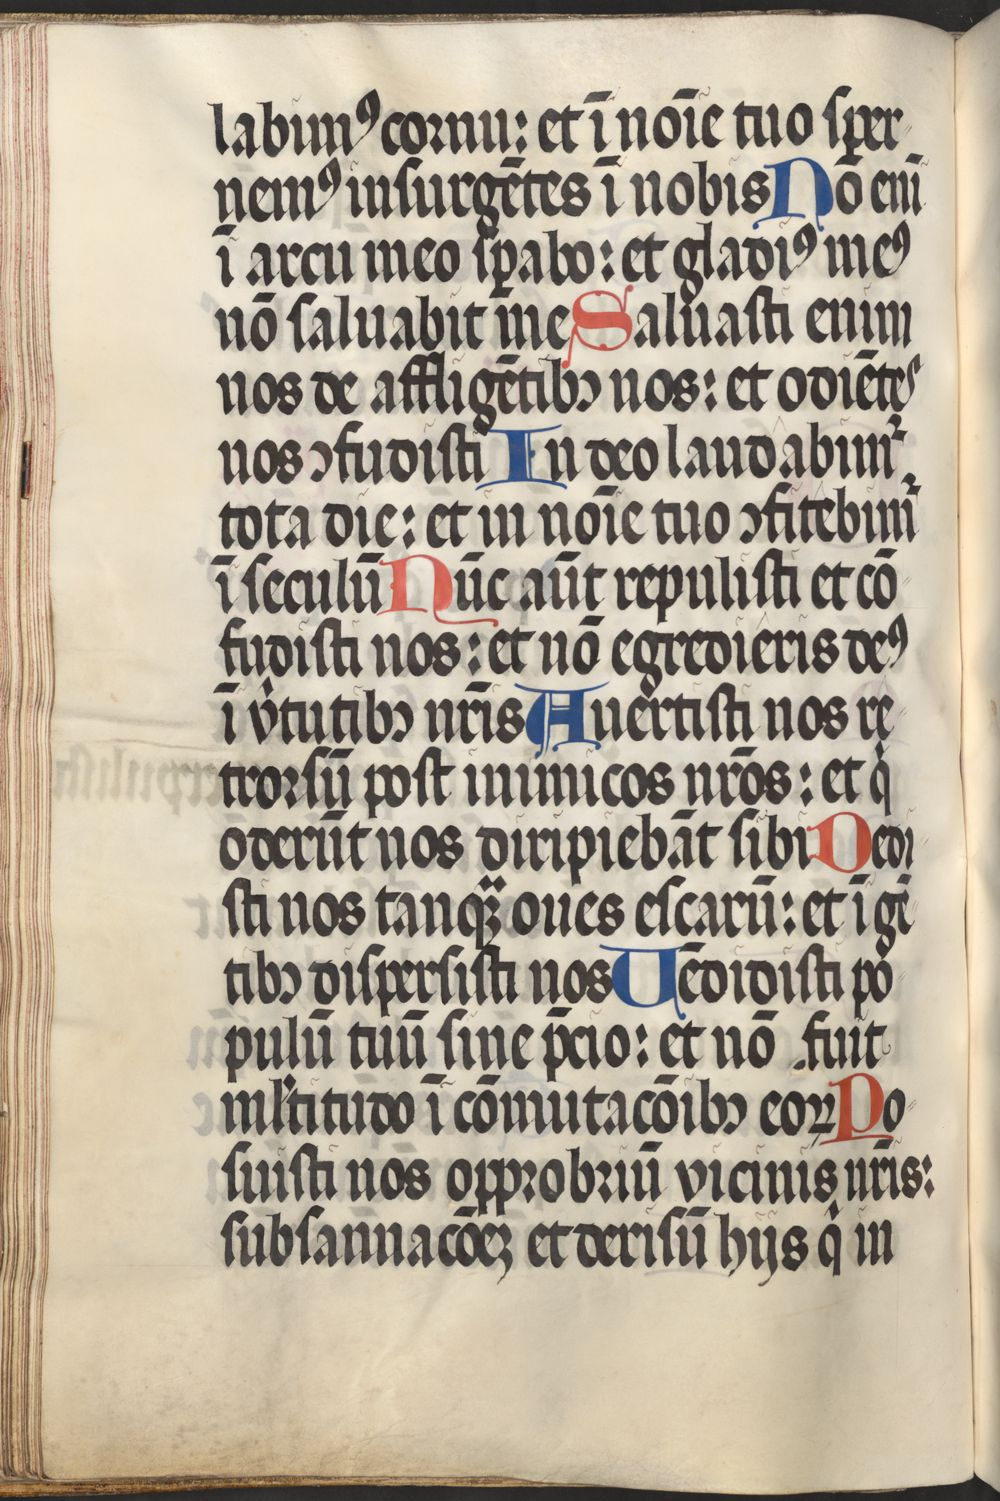 labimꝰ cornu: et ī noīe tuo sper
nemꝰ insurgētes ī nobis Nō eni̅
ī arcu meo sꝑabo: et gladiꝰ meꝰ
nō saluabit me Saluasti enim
nos de affligētibꝫ nos: et odiētes
nos ꝯfudisti In deo laudabimᷣ
tota die: et in noīe tuo ꝯfitebimᷣ
ī seculū Nūc aūt repulisti et cō
fudisti nos: et nō egredieris deꝰ
ī v̓tutibꝫ nr̄is Auertisti nos re
trorsū post inimicos nr̄os: et qͥ
oderūt nos diripiebāt sibi Dedi
sti nos tanqᷓꝫ oues escarū: et ī gē
tibꝫ dispersisti nos Uēdidisti po
pulū tuū sine p̄cio: et nō fuit
ml̓titudo ī cōmutacōibꝫ eoꝝ Po
suisti nos opprobriū vicinis nr̄is:
subsannacōeꝫ et derisū hijs qͥ in